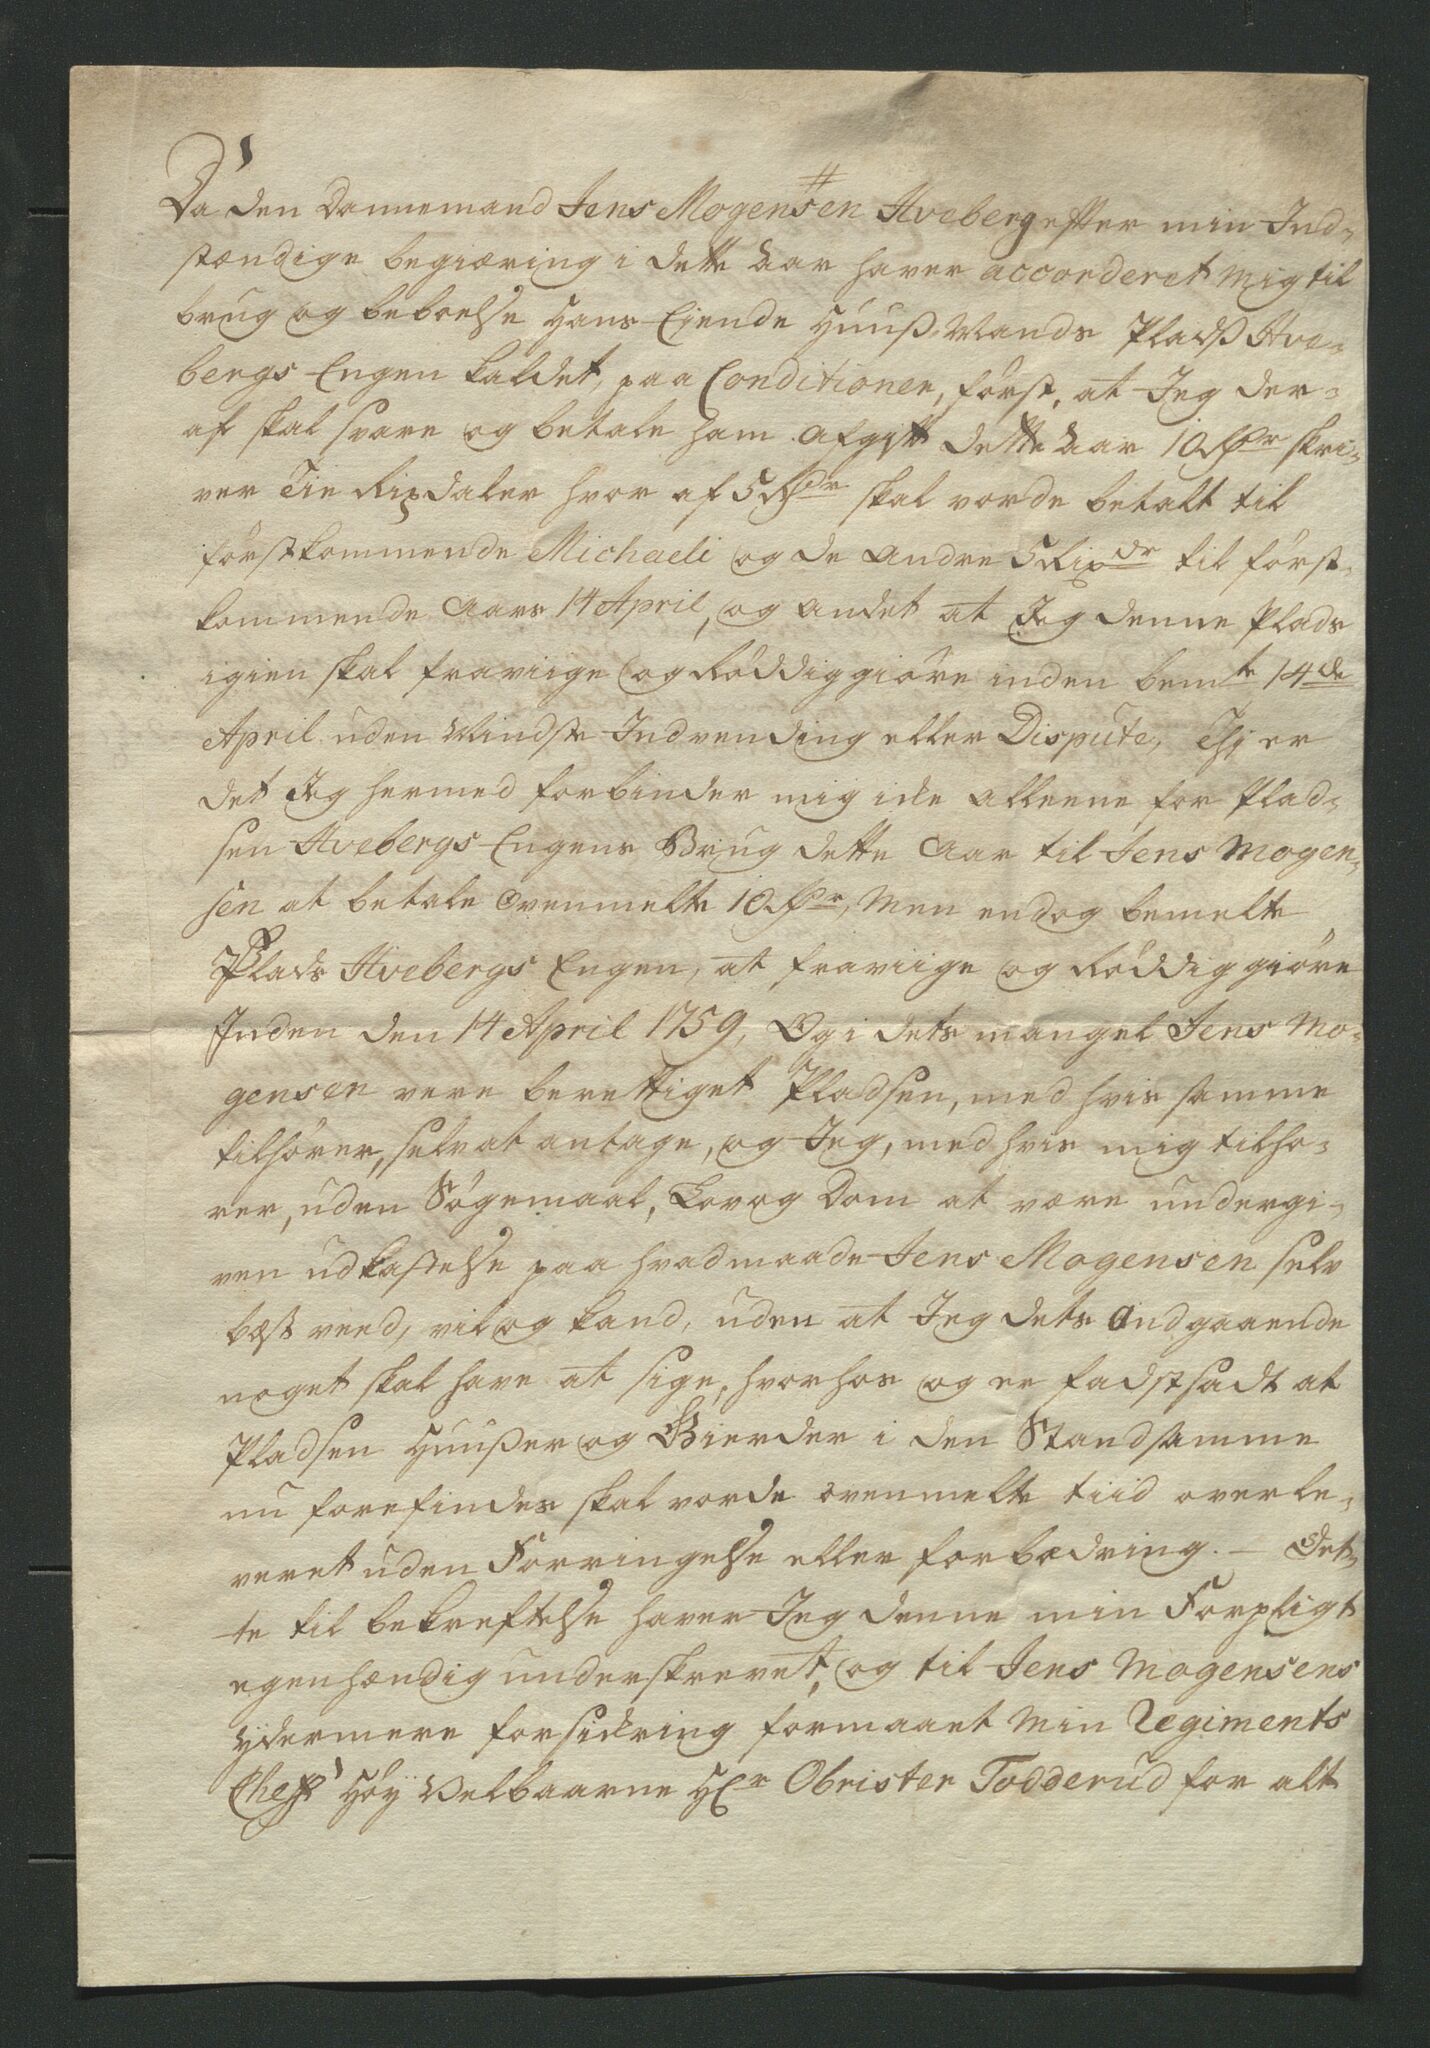 Da den Dannemand Jens Mogensen # Hveberg efter min Ind-
stændige begiæring i dette Aar haver accorderet Mig til
brug og beboelse Hans Eiende Huuß-Mands Pladß Hve-
bergs-Engen kaldet, paa Conditioner, først, at Jeg der-
af skal svare og betale ham Afgift dette Aar 10 Rdr skri-
ver Tie Rixdaler hvor af 5 Rdr skal vorde betalt til
førstkommende Michaeli og de andre 5 Rixdr til først-
kommende Aars 14 April, og andet at Jeg denne Plads
igien skal fraviige og Røddiggiøre inden bemte 14de
April uden Mindste Indvending eller Dispute, Thj er
det Jeg hermed forbinder mig icke alleene for Plad-
sen Hvebergs-Engens Brug dette Aar til Jens Mogen-
sen at betale Ovenmelte 10 Rdr, Men endog bemelte
Plads Hvebergs Engen, at fraviige og Røddiggiøre
Inden den 14 April 1759, Og i dets mangel Jens Mo-
gensen vere berettiget Pladsen, med hvis samme
tilhører, selv at antage, og Jeg, med hvis mig tilhø-
rer, uden Søgemaal, Lov og Dom at være undergi-
ven udkastelse paa hvad maade Jens Mogensen selv
best veed, vil og kand, uden at Jeg dets Andgaaende
noget skal have at sige, hvorhos og er fadstsadt at
Pladsen Huußer og Gierder i den Stand samme
nu forefindes skal vorde ovenmelte tiid overle-
veret uden Forringelse eller forbædring. — Det-
te til bekreftelse haver Jeg denne min Forpligt
egenhændig underskrevet, og til Jens Mogensens
ydermere forsickring formaaet Min Regiments
Chef Høy Velbaarne Hr Obrister Todderud for alt